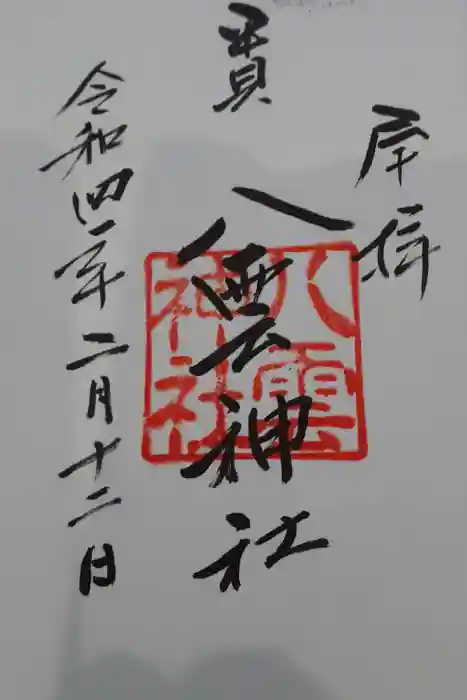 奉拝
貫
八雲神社
八雲
神社
令和四年二月十二日